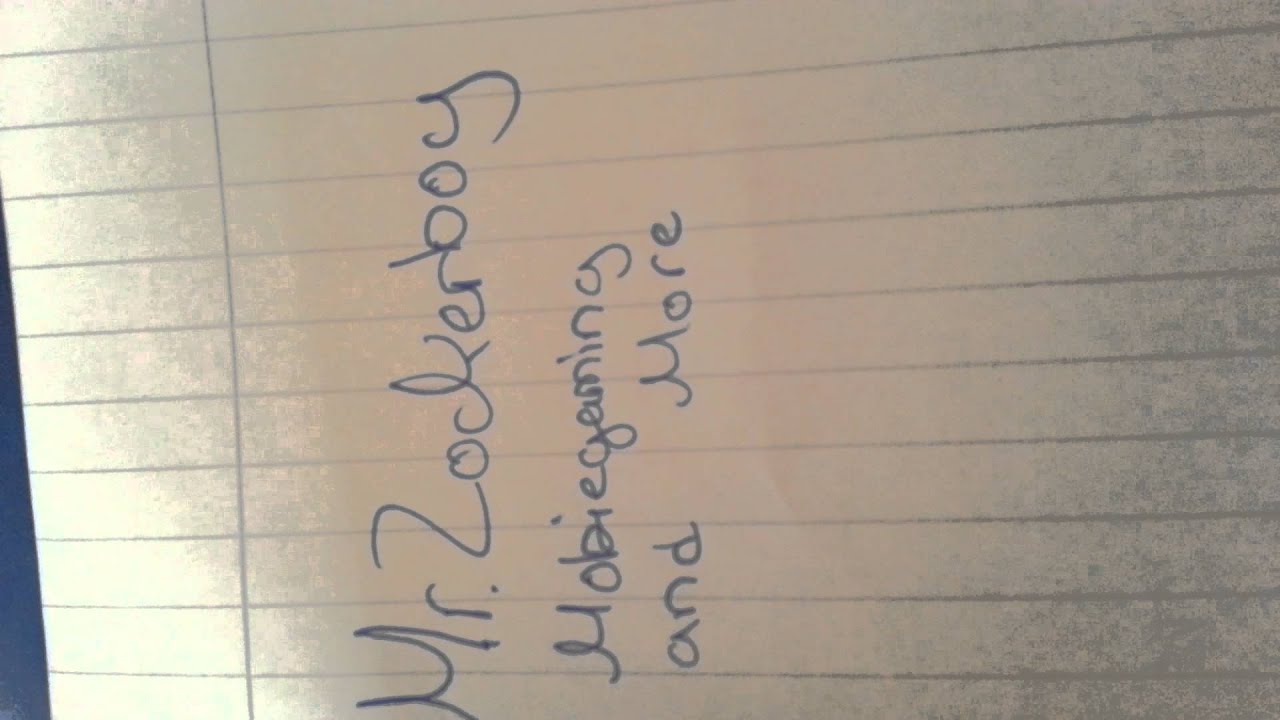 Mr. Zockerboy
Mobiegaming
and More